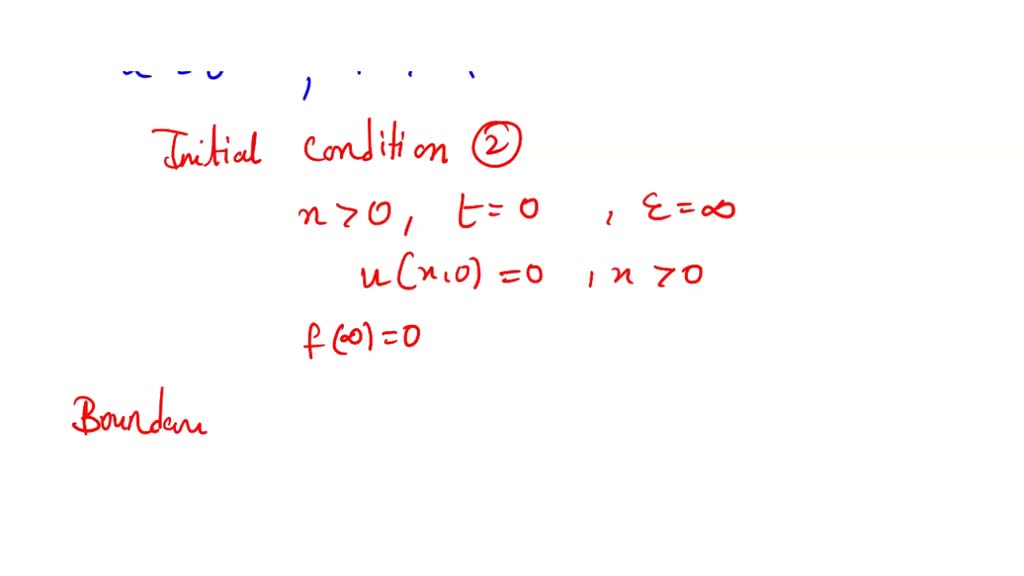 Initial condition ②
x > 0, t = 0 , ε = ∞
u(x,0) = 0 , x > 0
f(∞) = 0
Boundar